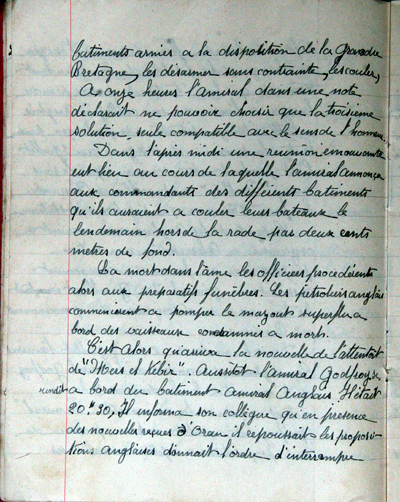 batiments armés a la disposition de la Grande
Bretagne, les désarmer sans contrainte, les couler,
A onze heures l'amiral dans une note
déclarait ne pouvoir choisir que la troisième
solution seule compatible avec le sens de l'honneur
Dans l'après midi une reunion émouvante
eut lieu au cours de laquelle l'amiral annonça
aux commandants des differents batiments
qu'ils auraient a couler leurs bateaux le
lendemain hors de la rade pas deux cents
metres de fond.
La mort dans l'âme les officiers procédèrent
alors aux preparatifs funèbres. Les pétroliers anglais
commencèrent a pomper le mazout superflu a
bord des vaisseaux condamnés a mort.
C'est Alors qu'arriva la nouvelle de l'attentat
de "Mers el Kebir". Aussitot l'amiral Godfroy se
rendit a bord du batiment amiral Anglais. Il était
20.H 30, Il informa son collègue qu'en presence
des nouvelles reçues d'Oran il repoussait les proposi
tions anglaises donnait l'ordre d'interrompre